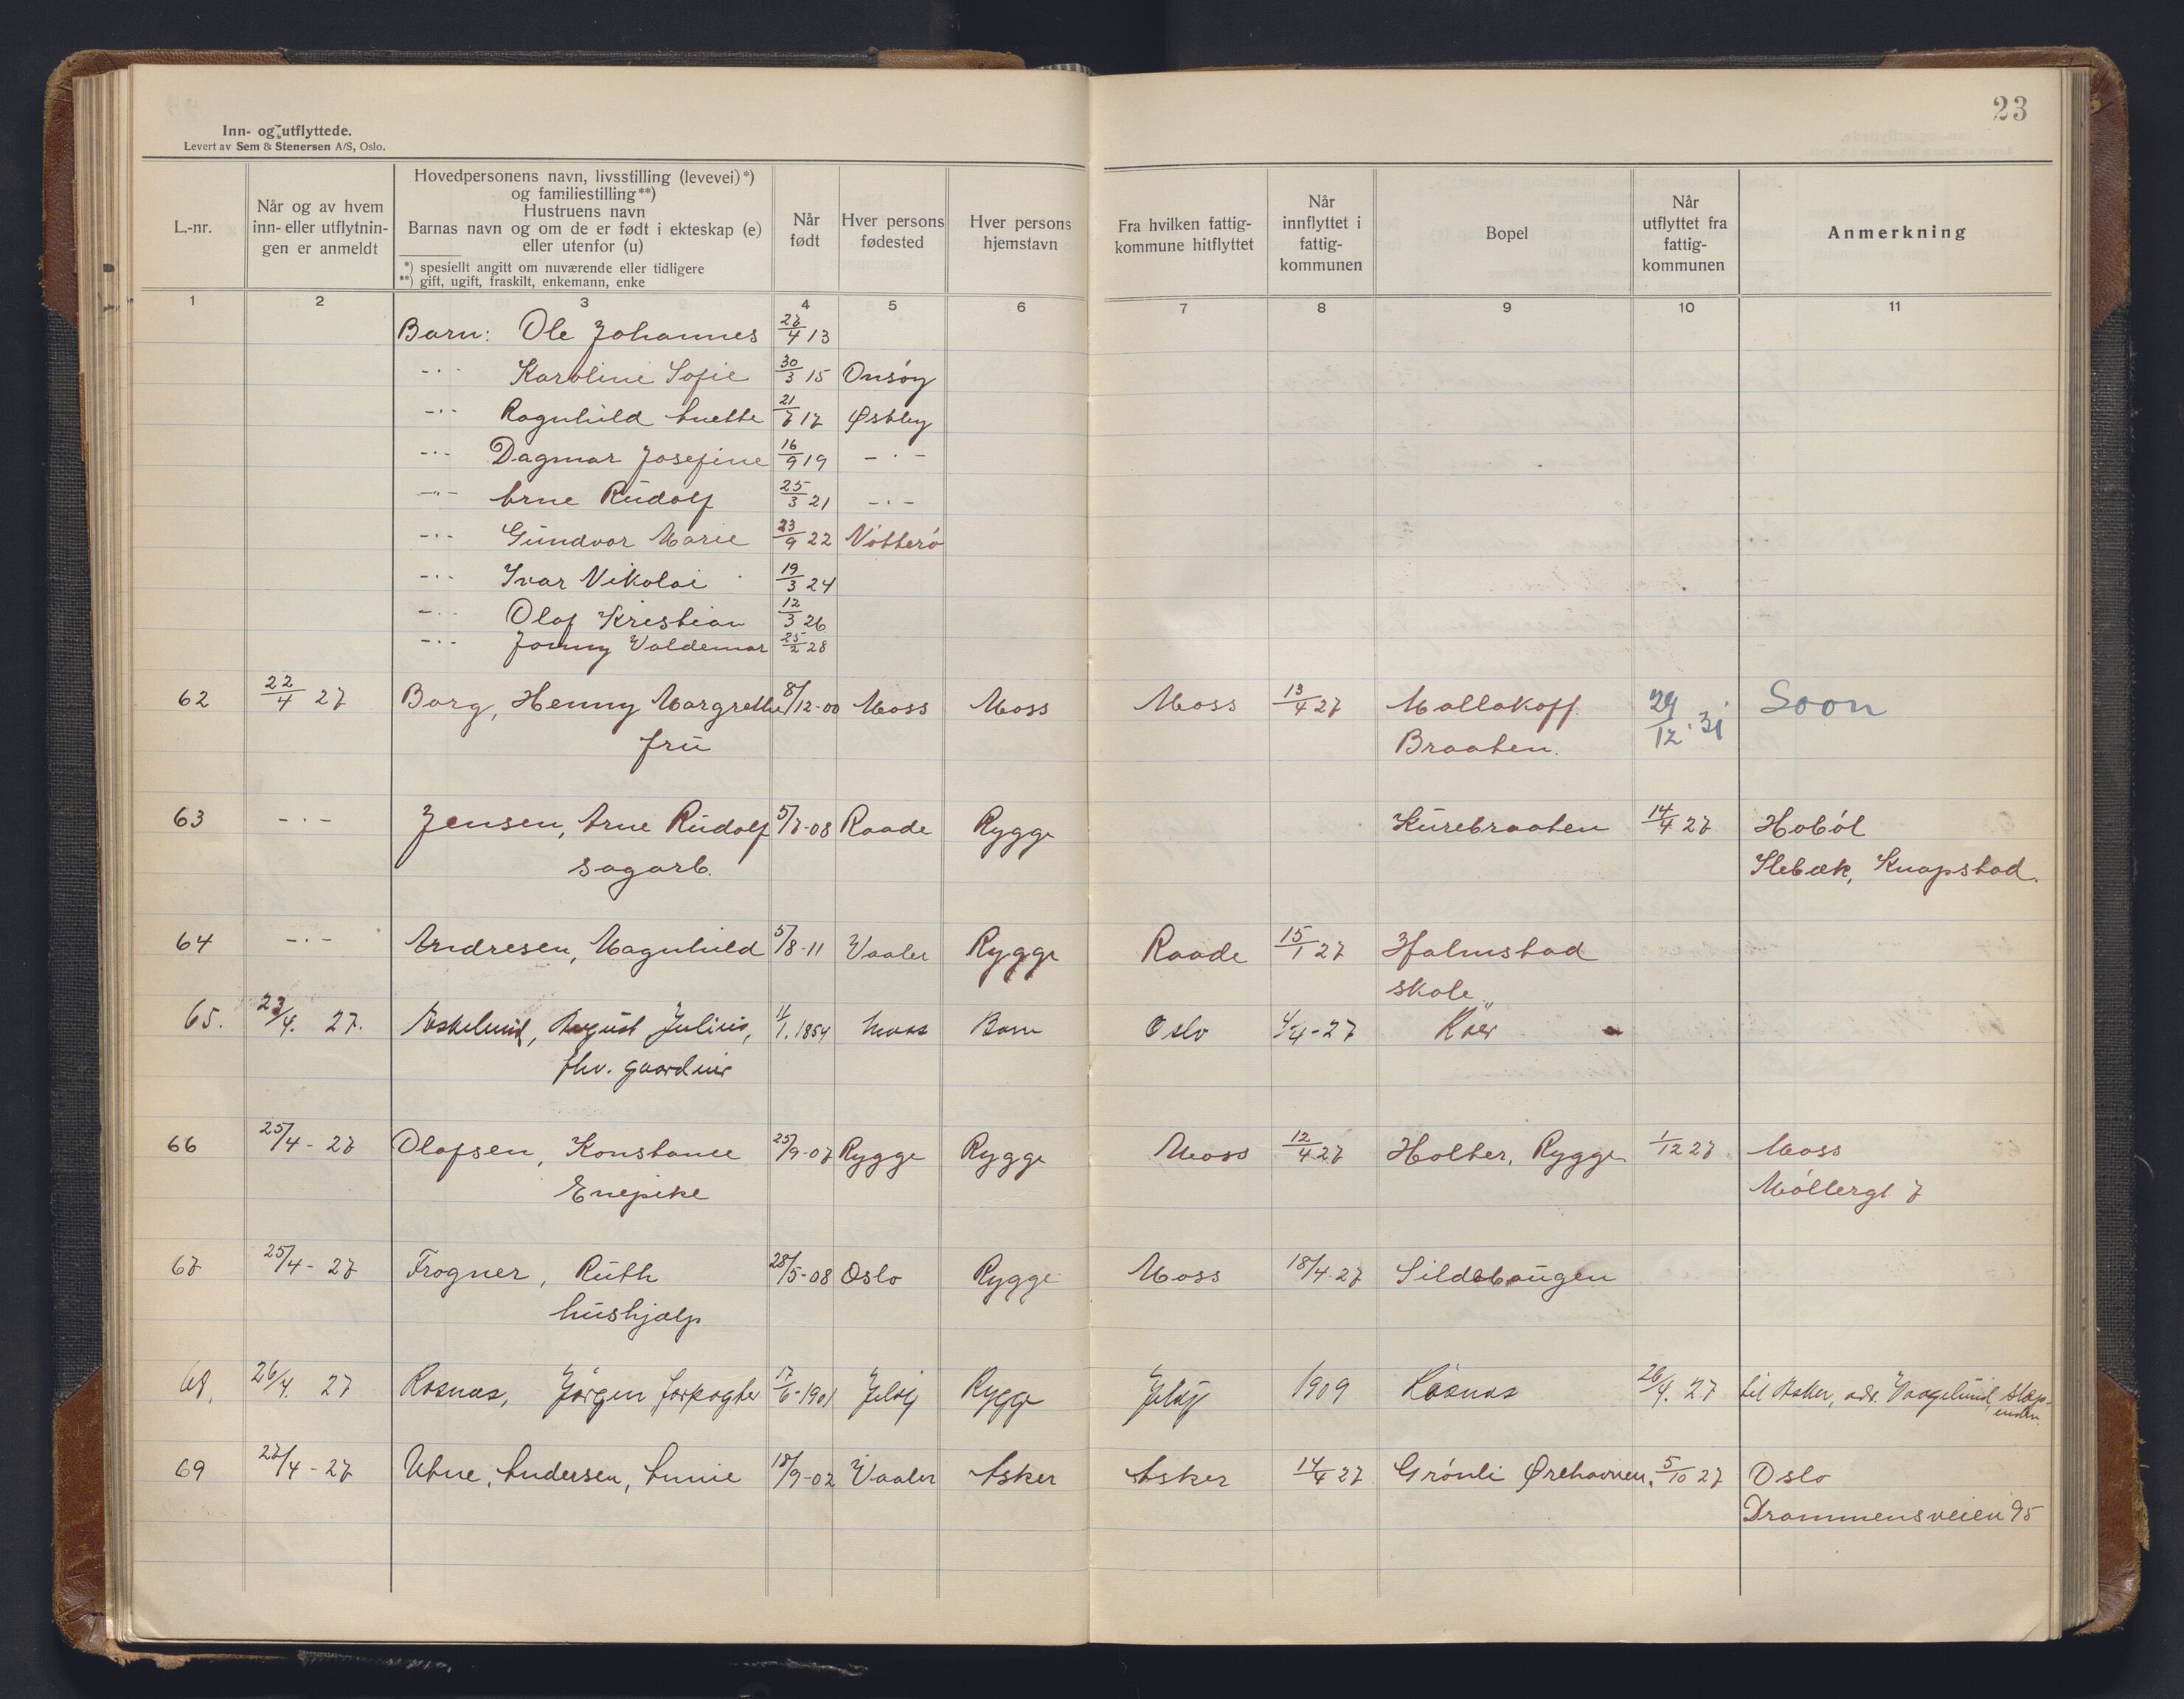 23
Inn- og utflyttede.
Levert av Sem & Stenersen A/S, Oslo.
L.-nr.
Når og av hvem inn- eller utflytnin-gen er anmeldt
Hovedpersonens navn, livsstilling (levevei) *) og familiestilling **)
Hustruens navn
Barnas navn og om de er født i ekteskap (e) eller utenfor (u)
*) spesiellt angitt om nuværende eller tidligere
**) gift, ugift, fraskilt, enkemann, enke
Når født
Hver persons fødested
Hver persons hjemstavn
Fra hvilken fattig-kommune hitflyttet
Når innflyttet i fattig-kommunen
Bopel
Når utflyttet fra fattig-kommunen
Anmerkning
1 2 3 4 5 6 7 8 9 10 11
Barn: Ole Johannes 27/4 13
-"- Karoline Sofie 30/3 15 Onsöy
-"- Ragnhild Anette 21/7 17 Østby
-"- Dagmar Josefine 16/9 19 -"-
-"- Arne Rudolf 25/3 21 -"-
-"- Gundvor Marie 23/9 22 Nötterö
-"- Ivar Nikolai 19/3 24
-"- Olaf Kristian 12/3 26
-"- Jonny Valdemar 25/2 28
62 22/4 27 Borg, Henny Margrethe 8/12-00 Moss Moss Moss 13/4 27 Mallakoff 29/12-31 Soon
fru Braaten.
63 -"- Jensen, Arne Rudolf 5/7-08 Raade Rygge Kurebraaten 14/4 27 Hoböl
sagarb. Ilebæk, Knapstad.
64 -"- Andresen, Magnhild 5/8-11 Vaaler Rygge Raade 15/1 27 Halmstad
skole
65. 23/4. 27. Eskelund, August Julius, 11/1. 1854 Moss Oslo 4/4-27 Kaer
fhv. gaardeier
66 25/4-27 Olafsen, Konstance 25/9-07 Rygge Rygge Moss 12/4 27 Holter, Rygge 1/12 27 Moss
Enepike Möllergt 7
67 25/4-27 Frogner, Ruth 28/5-08 Oslo Rygge Moss 18/4-27 Sildebaugen
hushjælp
68, 26/4. 27 Rosnæs, Jørgen forpagter 17/6-1901 Jeløy Rygge Jeløy 1909 Rosnæs 26/4. 27 til Asker, adr. Vaagelund, Slep-
enden.
69 27/4-27 Utne, Andersen, Annie 18/9-02 Vaaler Asker Asker 14/4 27 Grönli Ørehavnen. 5/10 27 Oslo
Drammensveien 95